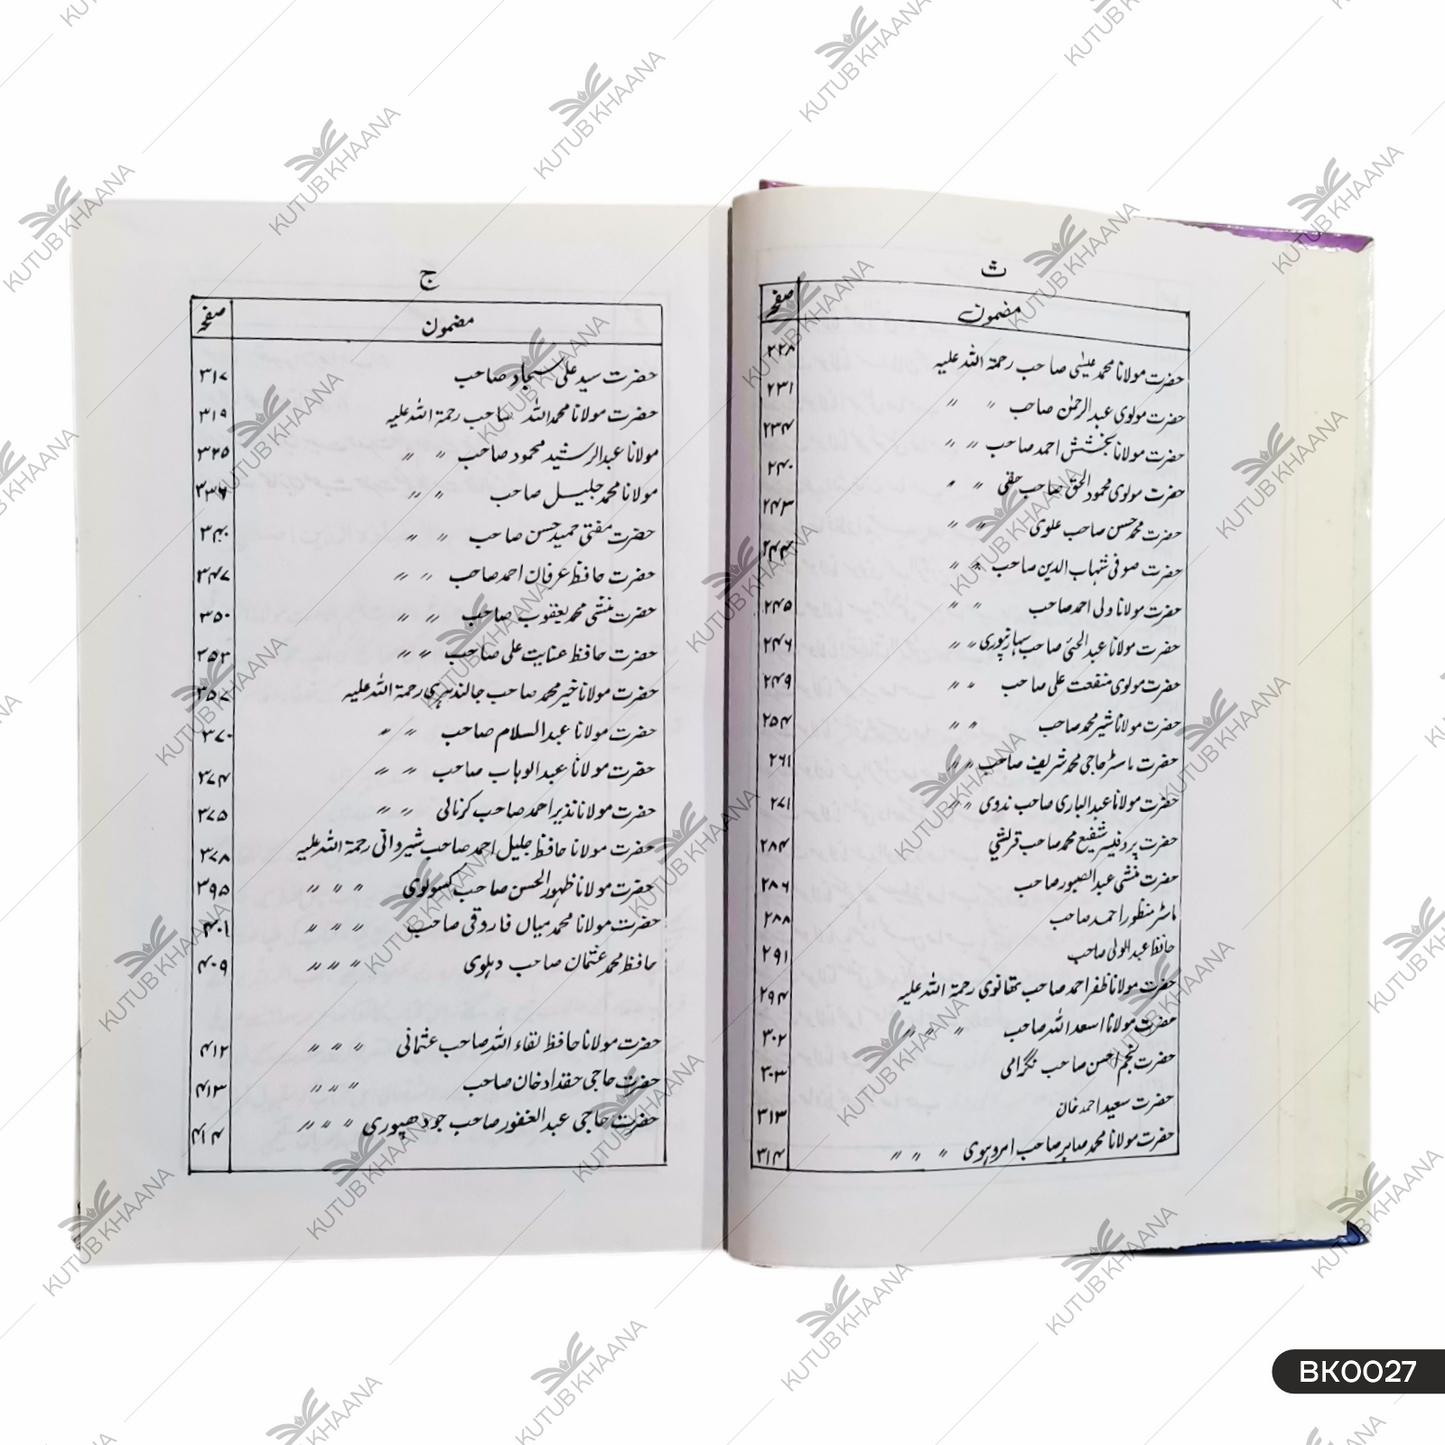 ث
مضمون صفحہ
حضرت مولانا محمد عیسٰی صاحب رحمۃ اللہ علیہ ۲۲۸
حضرت مولوی عبدالرحمٰن صاحب 〃 〃 ۲۳۱
حضرت مولانا بخشش احمد صاحب 〃 〃 ۲۳۴
حضرت مولوی محمود الحق صاحب حقی 〃 〃 ۲۴۰
حضرت محمد حسن صاحب علوی 〃 〃 ۲۴۳
حضرت صوفی شہاب الدین صاحب 〃 〃 ۲۴۴
حضرت مولانا ولی احمد صاحب 〃 〃 ۲۴۵
حضرت مولانا عبدالحئی صاحب سہارنپوری 〃 〃 ۲۴۶
حضرت مولوی منفعت علی صاحب 〃 〃 ۲۴۹
حضرت مولانا شیر محمد صاحب 〃 〃 ۲۵۴
حضرت ماسٹر حاجی محمد شریف صاحب 〃 〃 ۲۶۱
حضرت مولانا عبدالباری صاحب ندوی 〃 〃 ۲۷۱
حضرت پروفیسر شفیع محمد صاحب قریشی ۲۸۴
حضرت منشی عبدالصبور صاحب ۲۸۶
ماسٹر منظور احمد صاحب ۲۸۸
حافظ عبدالولی صاحب ۲۹۱
حضرت مولانا ظفر احمد صاحب تھانوی رحمۃ اللہ علیہ ۲۹۴
حضرت مولانا اسعد اللہ صاحب 〃 〃 〃 ۳۰۲
حضرت نجم احسن صاحب نگرامی ۳۰۳
حضرت سعید احمد خان ۳۱۳
حضرت مولانا محمد صابر صاحب امروہوی 〃 〃 〃 ۳۱۴
ج
مضمون صفحہ
حضرت سید علی سجاد صاحب ۳۱۷
حضرت مولانا محمد اللہ صاحب رحمۃ اللہ علیہ ۳۱۹
مولانا عبدالرشید محمود صاحب 〃 〃 ۳۲۵
مولانا محمد جلیل صاحب 〃 〃 ۳۳۶
حضرت مفتی حمید حسن صاحب 〃 〃 ۳۴۰
حضرت حافظ عرفان احمد صاحب 〃 〃 ۳۴۷
حضرت منشی محمد یعقوب صاحب 〃 〃 ۳۵۰
حضرت حافظ عنایت علی صاحب 〃 〃 ۳۵۳
حضرت مولانا خیر محمد صاحب جالندہری رحمۃ اللہ علیہ ۳۵۷
حضرت مولانا عبدالسلام صاحب 〃 〃 ۳۷۰
حضرت مولانا عبدالوہاب صاحب 〃 〃 ۳۷۴
حضرت مولانا نذیر احمد صاحب کرنالی 〃 〃 ۳۷۵
حضرت مولانا حافظ جلیل احمد صاحب شیروانی رحمۃ اللہ علیہ ۳۷۸
حضرت مولانا ظہور الحسن صاحب کسولوی 〃 〃 〃 ۳۹۵
حضرت مولانا محمد میاں فاروقی صاحب 〃 〃 〃 ۴۰۱
حافظ محمد عثمان صاحب دہلوی 〃 〃 〃 ۴۰۹
حضرت مولانا حافظ لقاء اللہ صاحب عثمانی 〃 〃 〃 ۴۱۲
حضرت حاجی حقداد خان صاحب 〃 〃 〃 ۴۱۳
حضرت حاجی عبدالغفور صاحب جودھپوری 〃 〃 〃 ۴۱۴
BK0027
KUTUB KHAANA